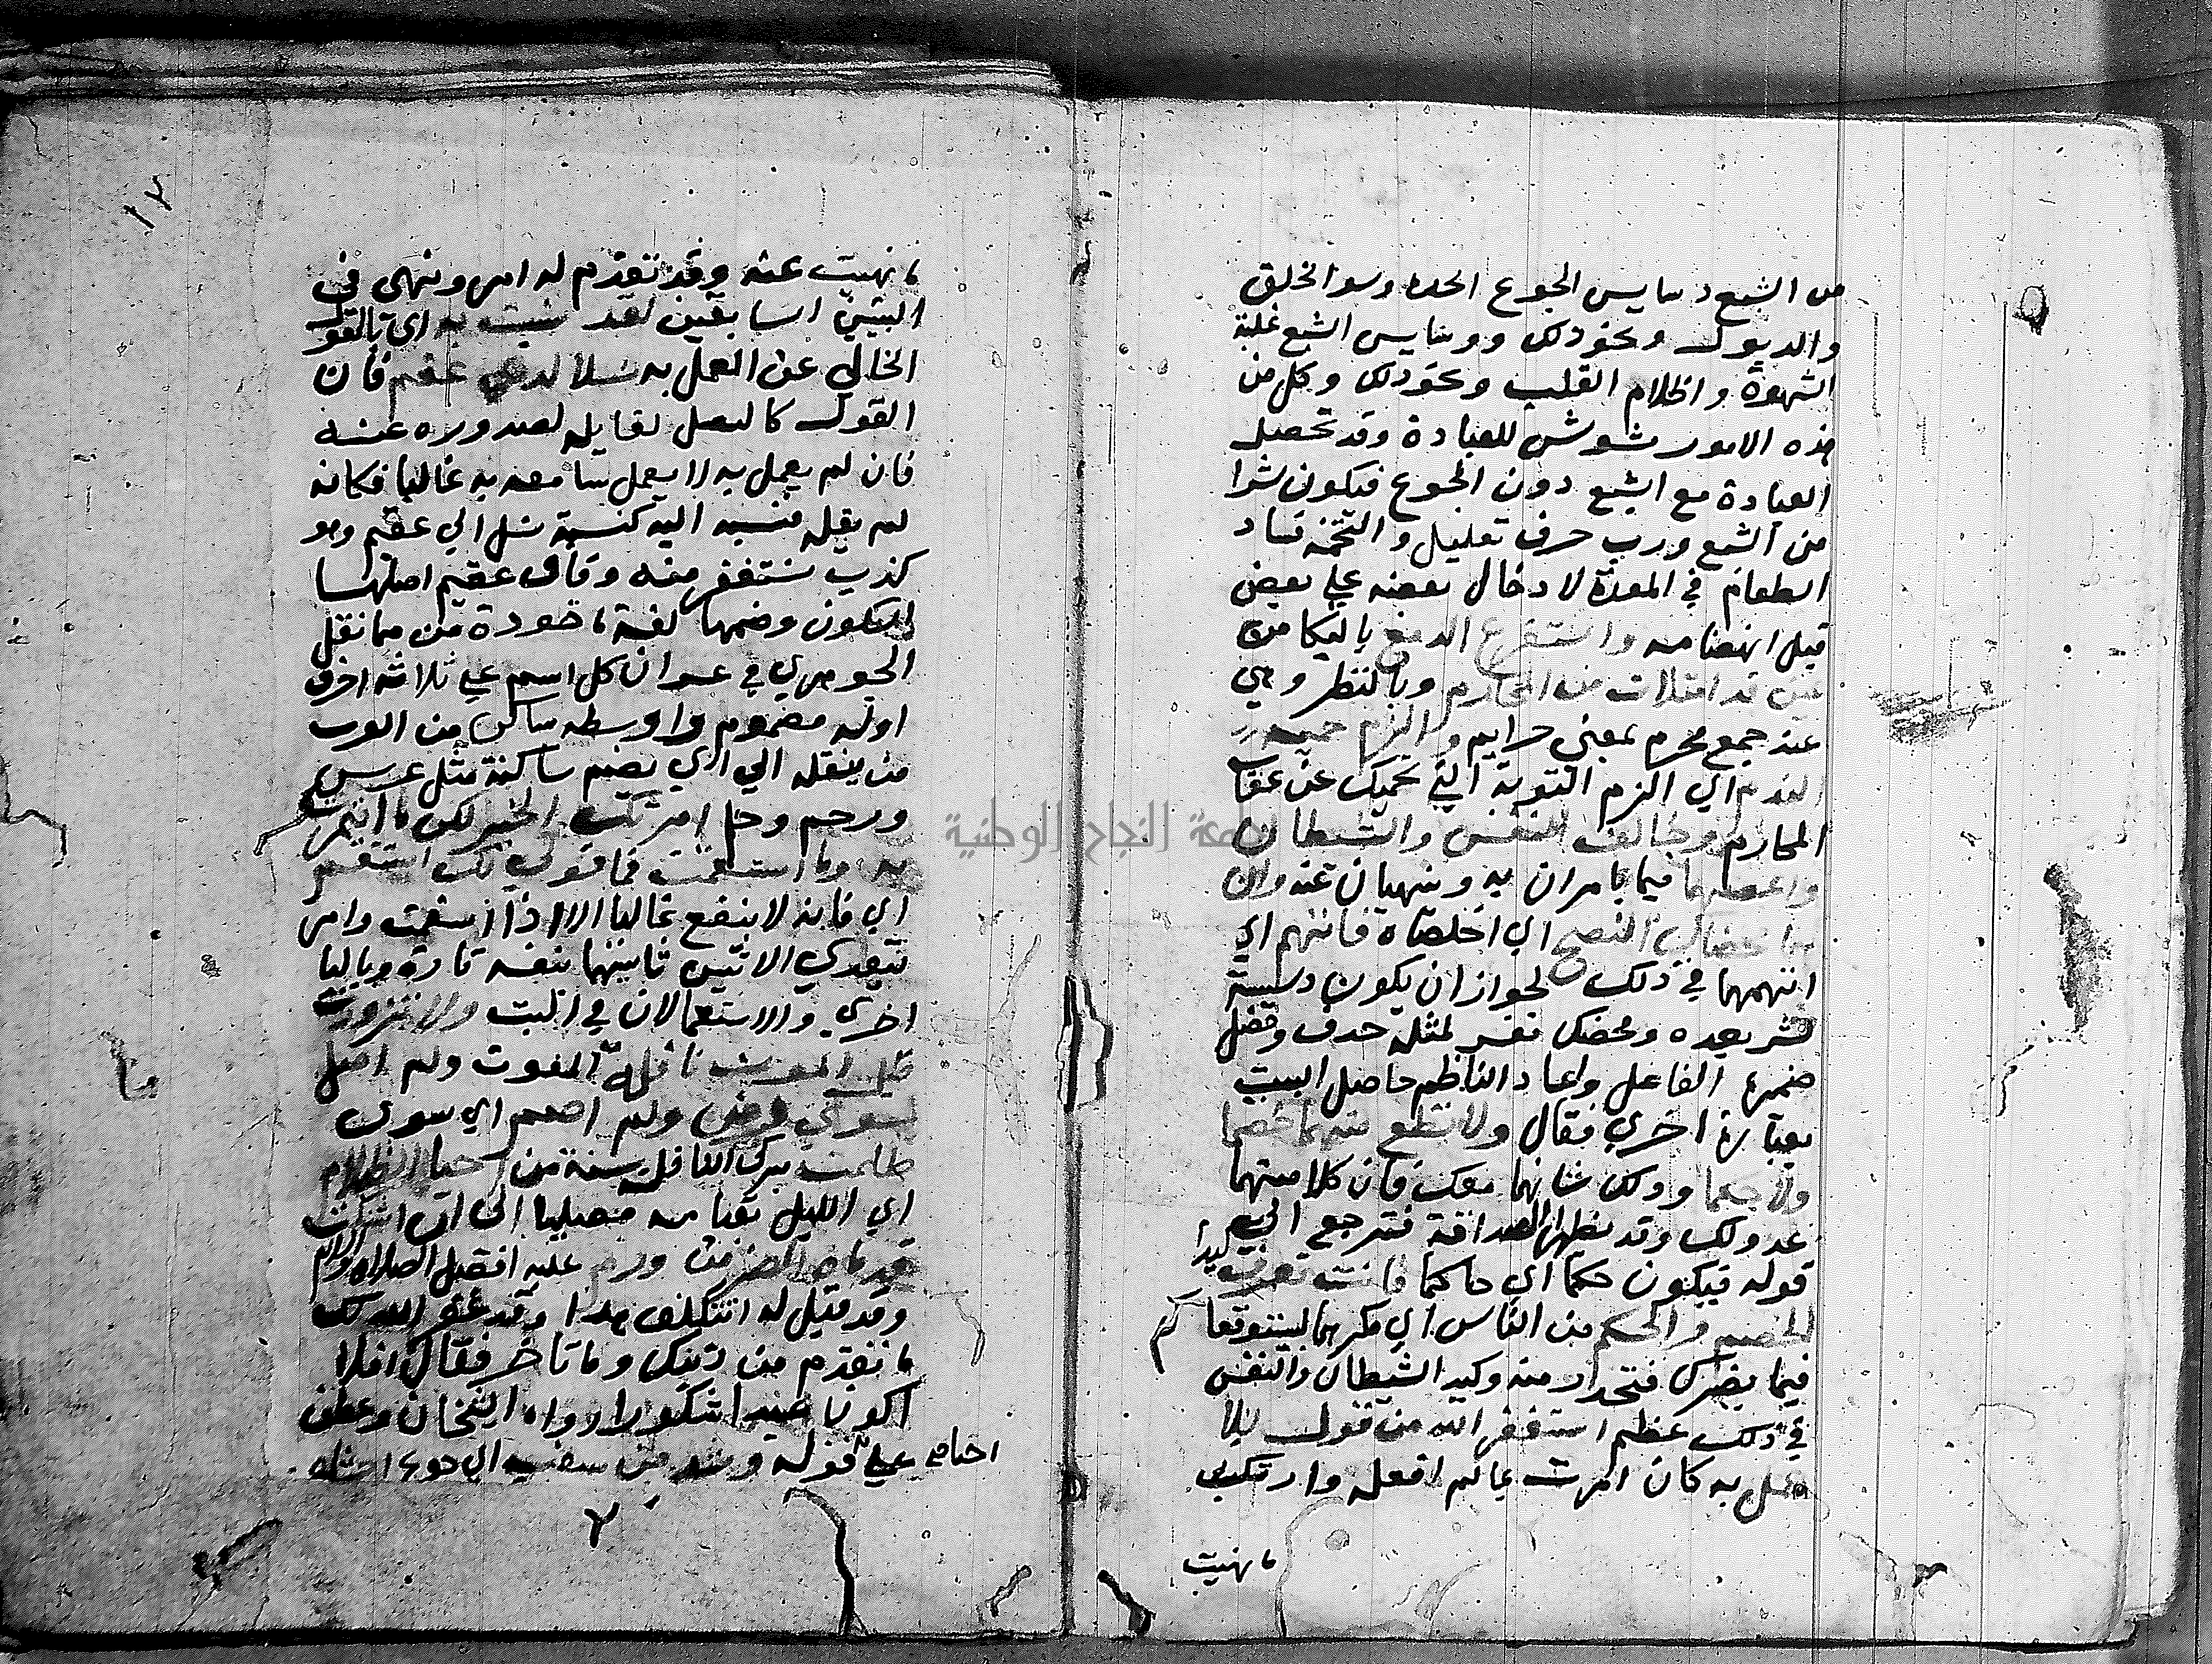 من الشبع دسايس الجوع الحدة وسو الخلق
والديول ونحو دلك ودسايس الشبع غلبة
الشهوة واظلام القلب ونحو دلك وكل من
هذه الامور مشوش للعبادة وقد تحصل
العبادة مع الشبع دون الجوع فيكون شرا
من الشبع ورب حرف تعليل والتخمة فساد
الطعام في المعدة لادخال بعضه علي بعض
قبل انهضامه واستفرغ الدمع بالبكا من
عين قد امتلات من المحارم وبالنظر وهي
عنه جمع محرم بمعني حرايم والزم حمية
الندم اي الزم التوبة التي تحميك عن عقاب
المحارم وخالف النفس والشيطان
واعصهما فيما يامران به وينهيان عنه وان
هما محضاك النصح اي اخلصاه فاتهم اي
اتهمهما في ذلك لجواز ان يكون دسيسة
لشر بعده ومحضك تفسر لمثله حدف وفضل
ضميرها الفاعل واعاد الناظم حاصل البيت
بعبارة اخري فقال ولا تطع منهما خصما
ولا حكما ودلك شانهما معك فان كلا منهما
عدو لك وقد يظهر الصداقة فترجع الي
قوله فيكون حكما اي حاكما فانت تعرف كيد
الخصم والحكم من الناس اي مكرهما ليتوقعا
فيما يضرك فتحدر منه وكيد الشيطان والنفس
في ذلك عظم استغفر الله من قول بلا
عمل به كان امرت بمالم افعله وارتكبت
ما نهيت
١٧
ما نهيت عنه وقد تقدم له امر ونهي في
البيتين السابقين لقد نسبت به اي بالقول
الخالي عن العمل به نسلا لدي عقم فان
القول كالنصل لقايله لصدوره عنه
فان لم يعمل به لا يعمل سامعه به غالبا فكانه
لم يقله فنسبه اليه كنسبة نسل الي عقم وهو
كذب نستغفر منه وقاف عقم اصلها
السكون وضمها لغة ماخودة من ما نقل
الجوهري في عسر ان كل اسم علي ثلاثة احرف
اوله مضموم واوسطه ساكن من العرب
من يثقله الي الذي يضم ساكنة مثل عسر
ورحم وحلم امرتك الخير لكن ما ائتمرت
به وما استقمت فما قولي لك استقم
اي فانه لا ينفع غالبا الا اذا استقمت وامر
تتعدي الاثنين ثانيهما بنفسه تارة وبالبا
اخري والاستعمالان في البيت ولا تزودت
قبل الموت نافلة المفوت ولم اصل
سوي فرض ولم اصم اي سوي
ظلمت بترك النافلة سنة من احيا الظلام
اي الليل بقيامه مصليا الي ان اشتكت
قدماه الضر من ورم عليه افضل الصلاة والسلام
وقد قيل له اتتكلف هدا وقد غفر الله لك
ما تقدم من دنبك وما تاخر فقال افلا
اكون عبدا شكورا رواه الشيخان وعطف
علي قوله وشد من سغب اي جوع احشاءه
احيا
٢